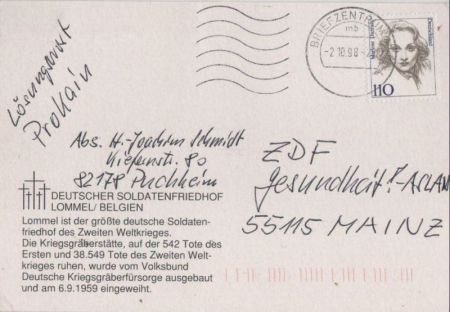 Lösungswort
Prokain
BRIEFZENTRUM
mb
-2.10.98-2
Deutschland
Marlene Dietrich
110
Abs. H.-Joachim Schmidt
Kiefernstr. 80
82178 Puchheim
ZDF
Gesundheit!-ASLAN
55115 MAINZ
DEUTSCHER SOLDATENFRIEDHOF
LOMMEL/ BELGIEN
Lommel ist der größte deutsche Soldaten-
friedhof des Zweiten Weltkrieges.
Die Kriegsgräberstätte, auf der 542 Tote des
Ersten und 38.549 Tote des Zweiten Welt-
krieges ruhen, wurde vom Volksbund
Deutsche Kriegsgräberfürsorge ausgebaut
und am 6.9.1959 eingeweiht.